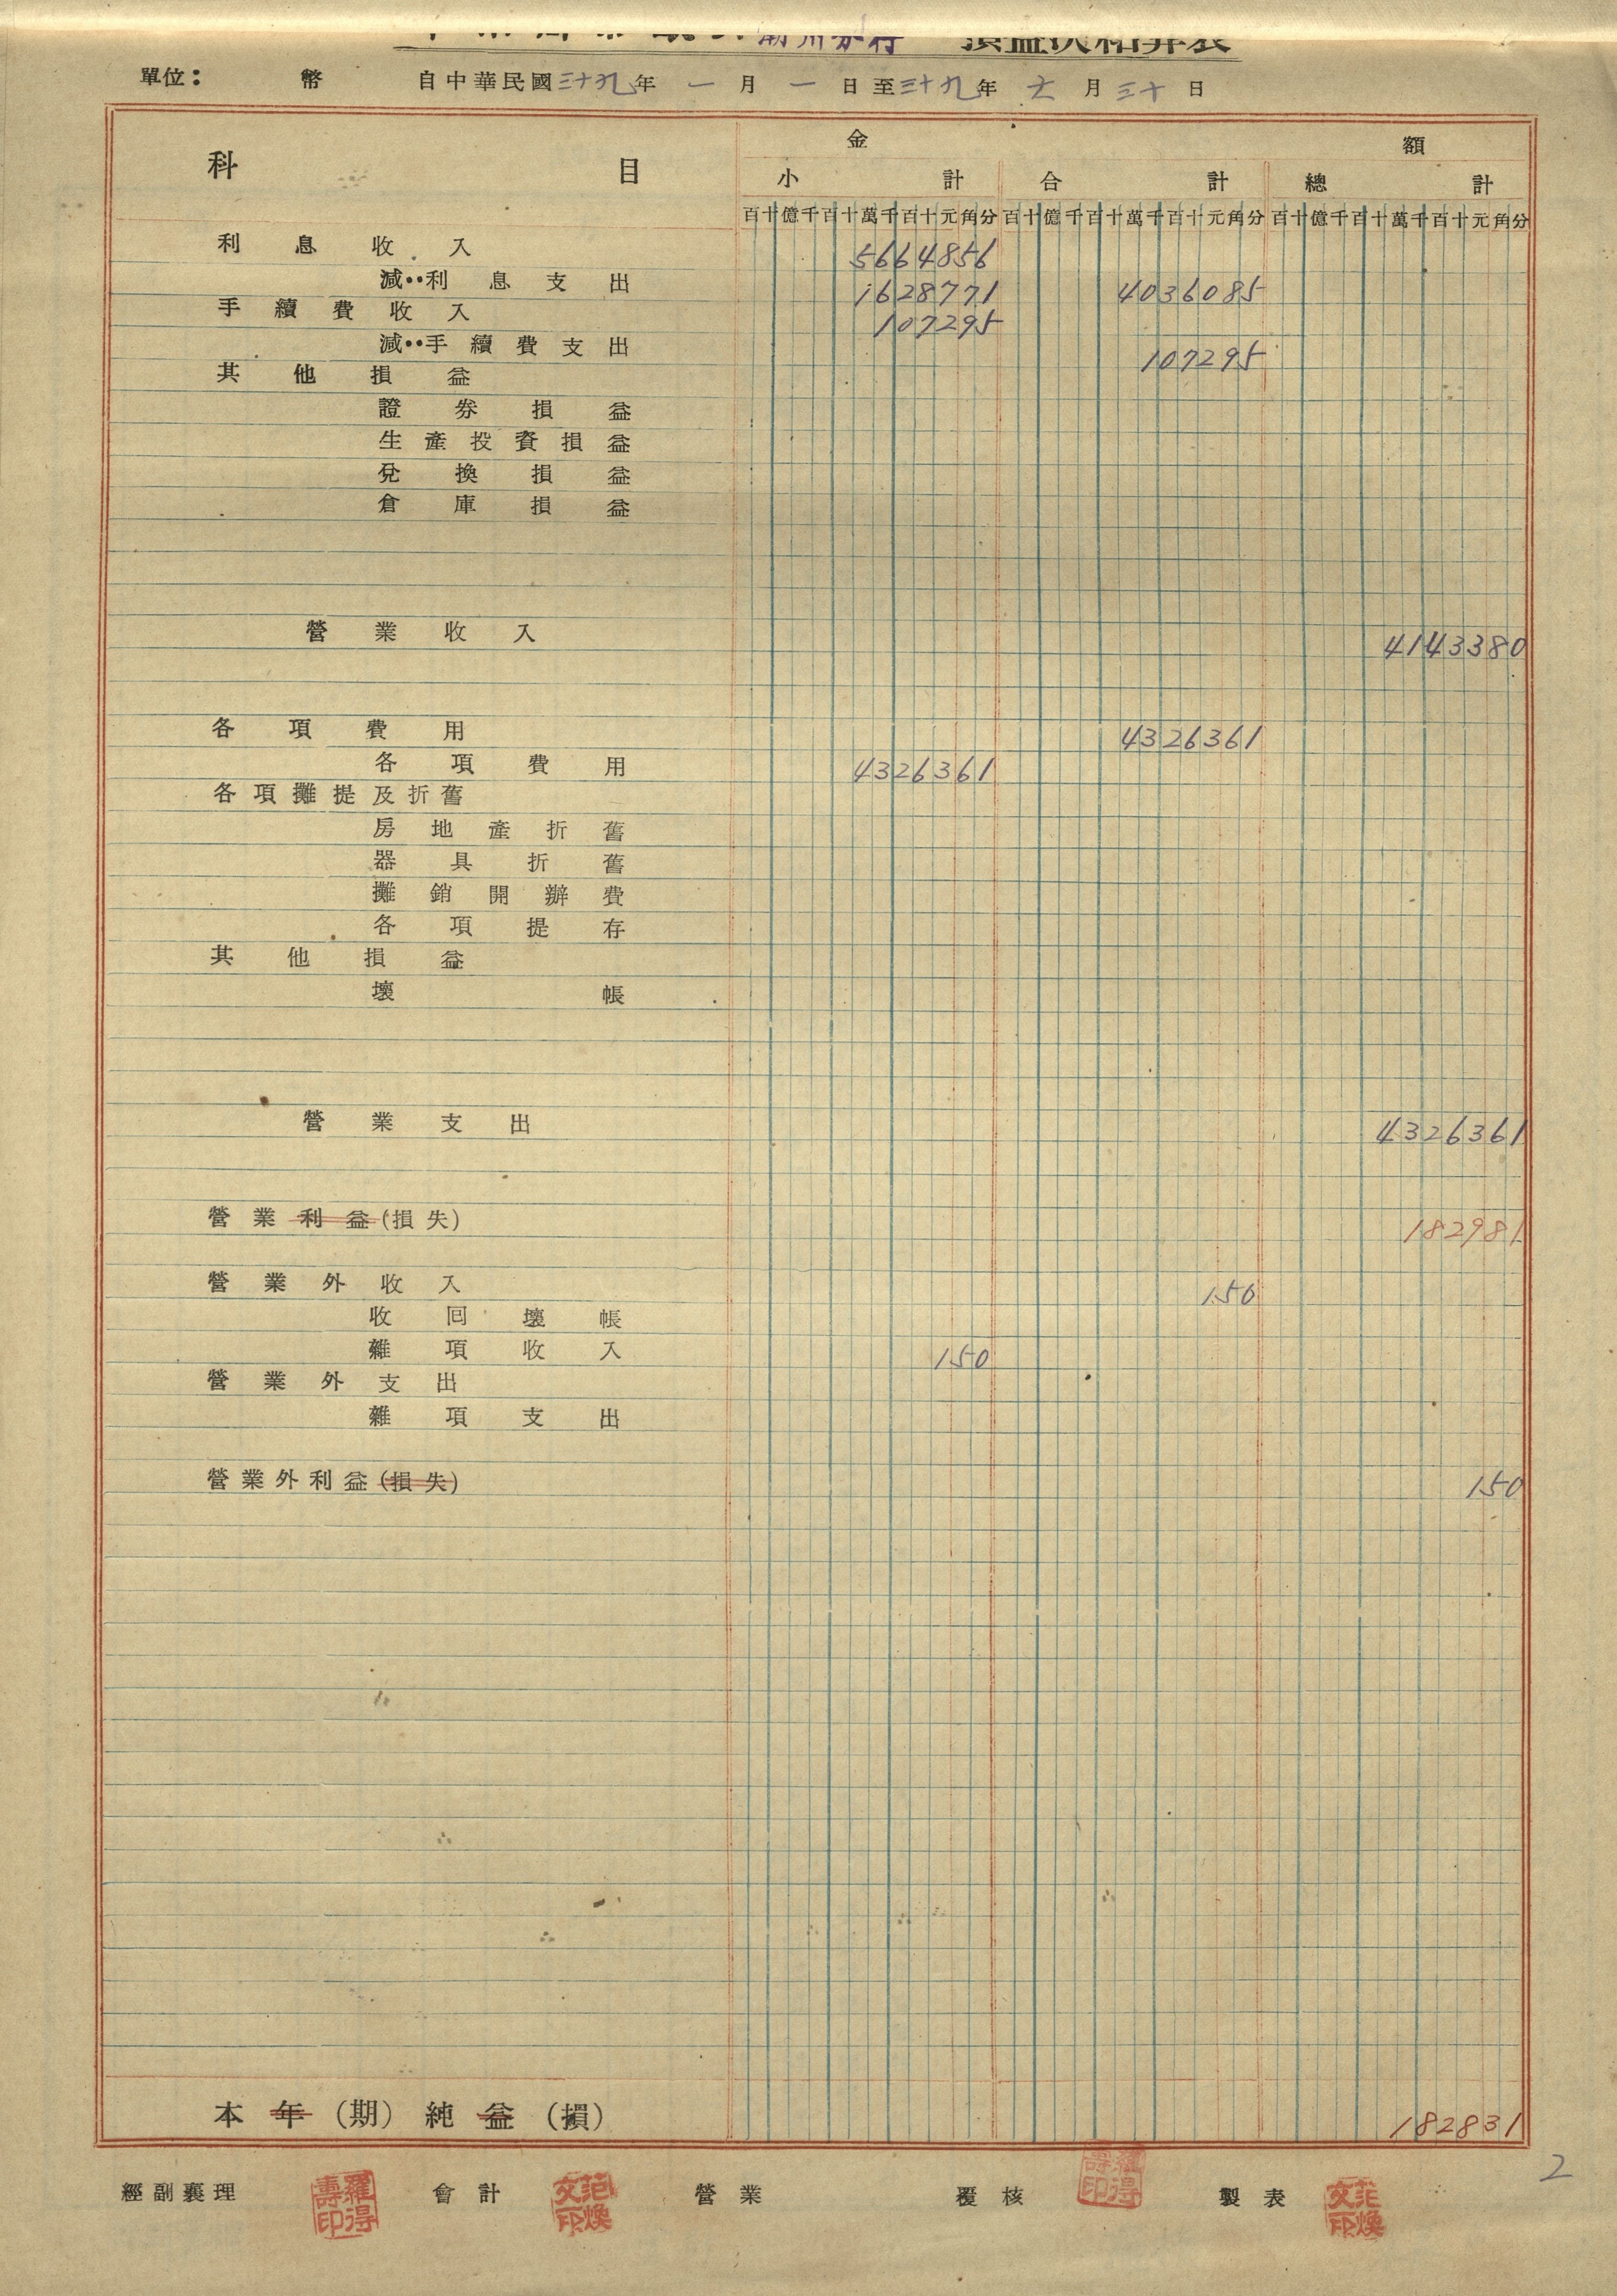 潮州分行 損益決算表
單位： 幣 自中華民國三十九年 一月 一日至三十九年 六月三十日
科目 金額
小計 合計 總計
百十億千百十萬千百十元角分 百十億千百十萬千百十元角分 百十億千百十萬千百十元角分
利息收入 5664856
減：利息支出 1628771 4036085
手續費收入 107295
減：手續費支出 107295
其他損益
證券損益
生產投資損益
兌換損益
倉庫損益
營業收入 4143380
各項費用 4326361
各項費用 4326361
各項攤提及折舊
房地產折舊
器具折舊
攤銷開辦費
各項提存
其他損益
壞帳
營業支出 4326361
營業利益(損失) 182981
營業外收入 150
收回壞帳
雜項收入 150
營業外支出
雜項支出
營業外利益(損失) 150
本年(期)純益(損) 182831
2
經副襄理 羅得壽印 會計 范煥文印 營業 覆核 羅得壽印 製表 范煥文印